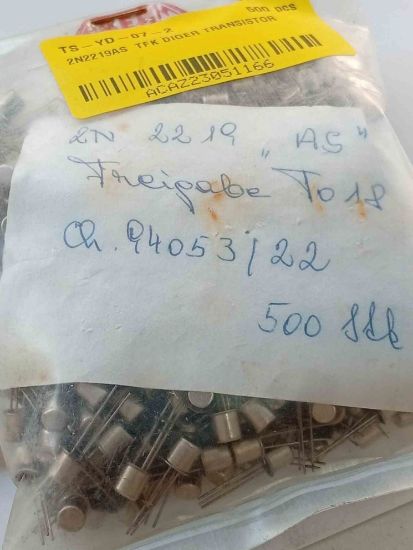 TS-YD-07-2 500 PCS
2N2219AS TFK DIGER TRANSISTOR
ACAZZ3051166
2N 2219 "AS"
Freigabe To 18
Ch. 94053/22
500 Stk